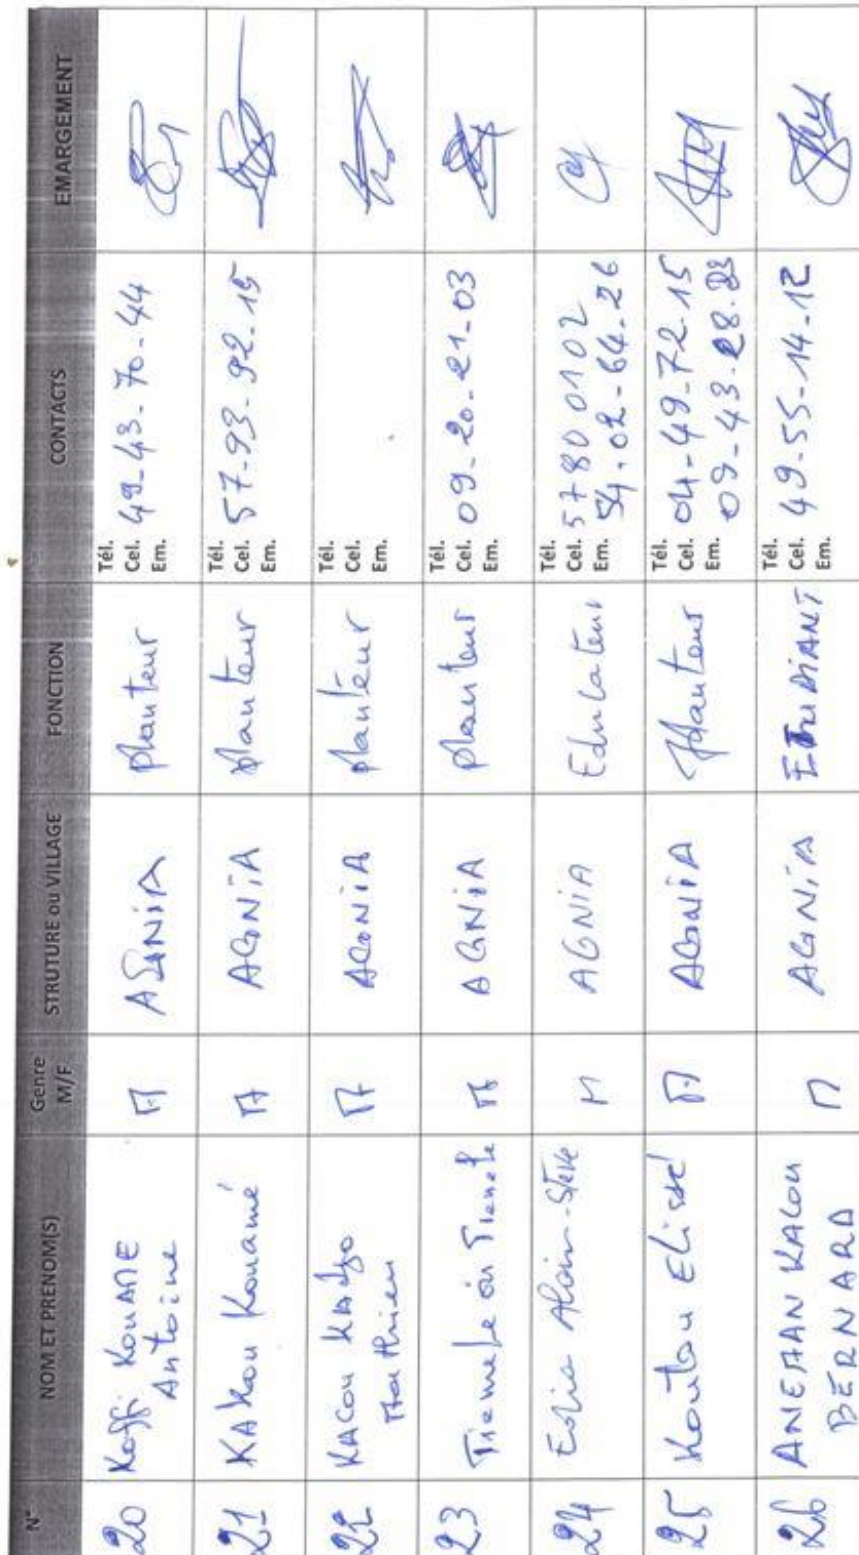 N° NOM ET PRENOM(S) Genre M/F STRUTURE ou VILLAGE FONCTION CONTACTS EMARGEMENT
20 Koffi KOUAME Antoine M AGNIA planteur Tél. Cel. Em. 49-43-70-44
21 KAKou Kouamé M AGNiA planteur Tél. Cel. Em. 57-93-92-15
22 KACOU M AGNiA planteur Tél. Cel. Em.
23 M AGNiA planteur Tél. Cel. Em. 09-20-21-03
24 Alain-Steve M AGNIA Educateur Tél. Cel. Em. 57800102 54-02-64-26
25 Koutou M AGNiA planteur Tél. Cel. Em. 04-49-72-15
26 KACOU BERNARD M AGNiA ETUDIANT Tél. Cel. Em. 49-55-14-12